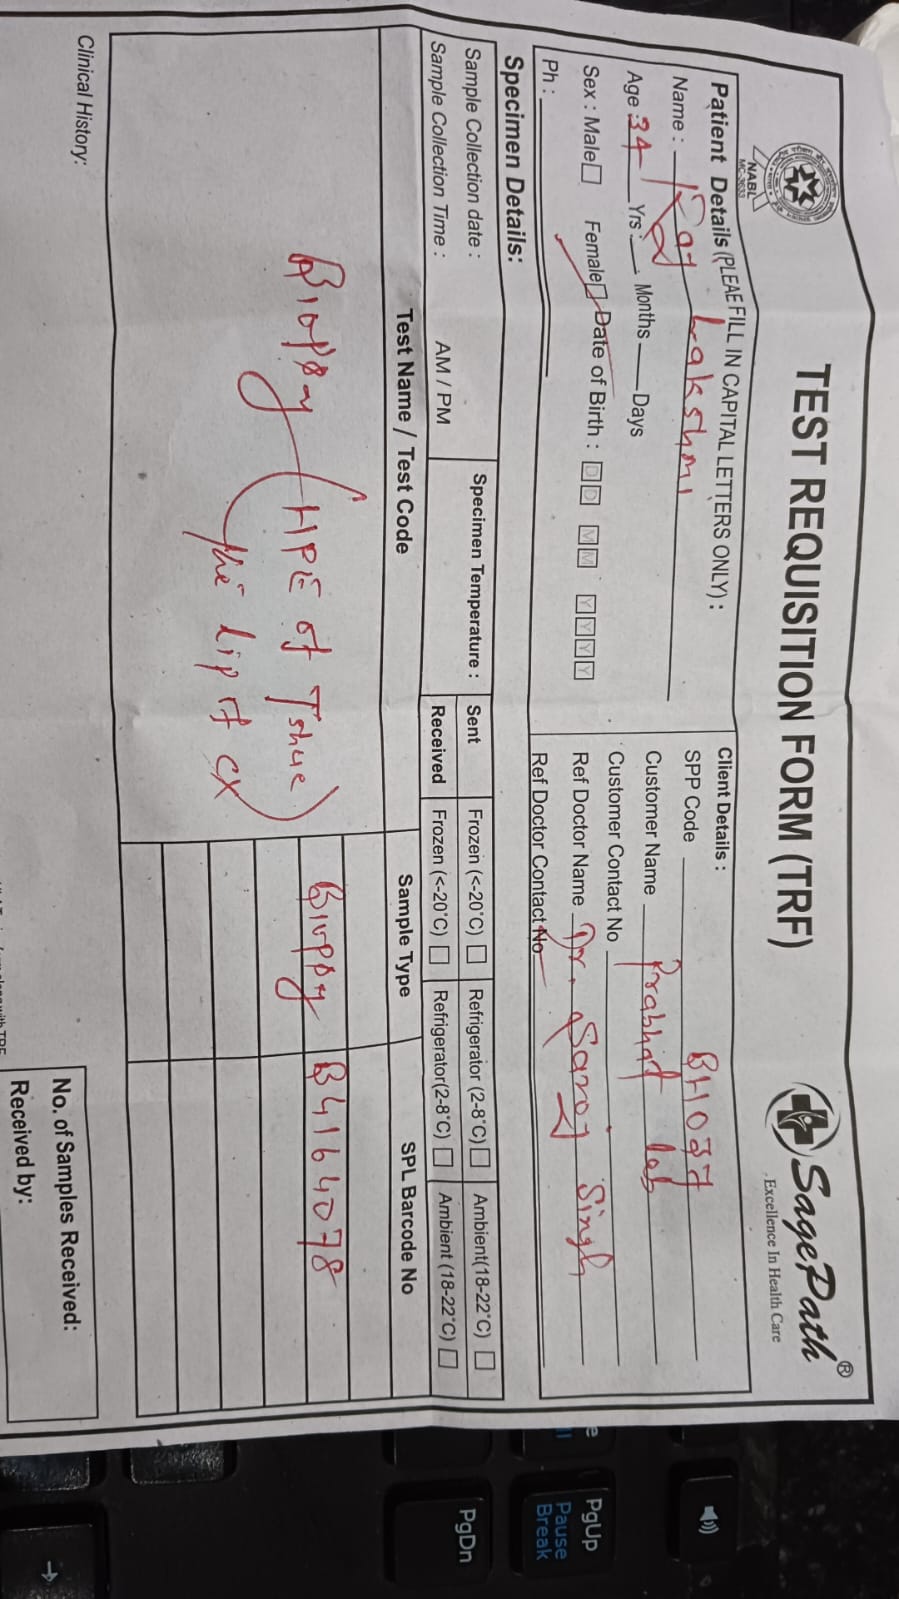 TEST REQUISITION FORM (TRF)
SagePath®
Excellence In Health Care
NABL
Patient Details (PLEAE FILL IN CAPITAL LETTERS ONLY) :
Name : Raj Lakshmi
Age : 34 Yrs : Months Days
Sex : Male Female Date of Birth : DD MM YYYY
Ph :
Client Details :
SPP Code BH037
Customer Name Prabhat lab
Customer Contact No
Ref Doctor Name Dr. Saroj Singh
Ref Doctor Contact No
Specimen Details:
Sample Collection date :
Sample Collection Time : AM / PM
Specimen Temperature :
Sent Frozen (<-20°C) Refrigerator (2-8°C) Ambient(18-22°C)
Received Frozen (<-20°C) Refrigerator(2-8°C) Ambient (18-22°C)
Test Name / Test Code Sample Type SPL Barcode No
Biopsy (HPE of Tshue) Biopsy B4164078
the Lip of CX
Clinical History:
No. of Samples Received:
Received by:
PgUp
Pause
Break
PgDn